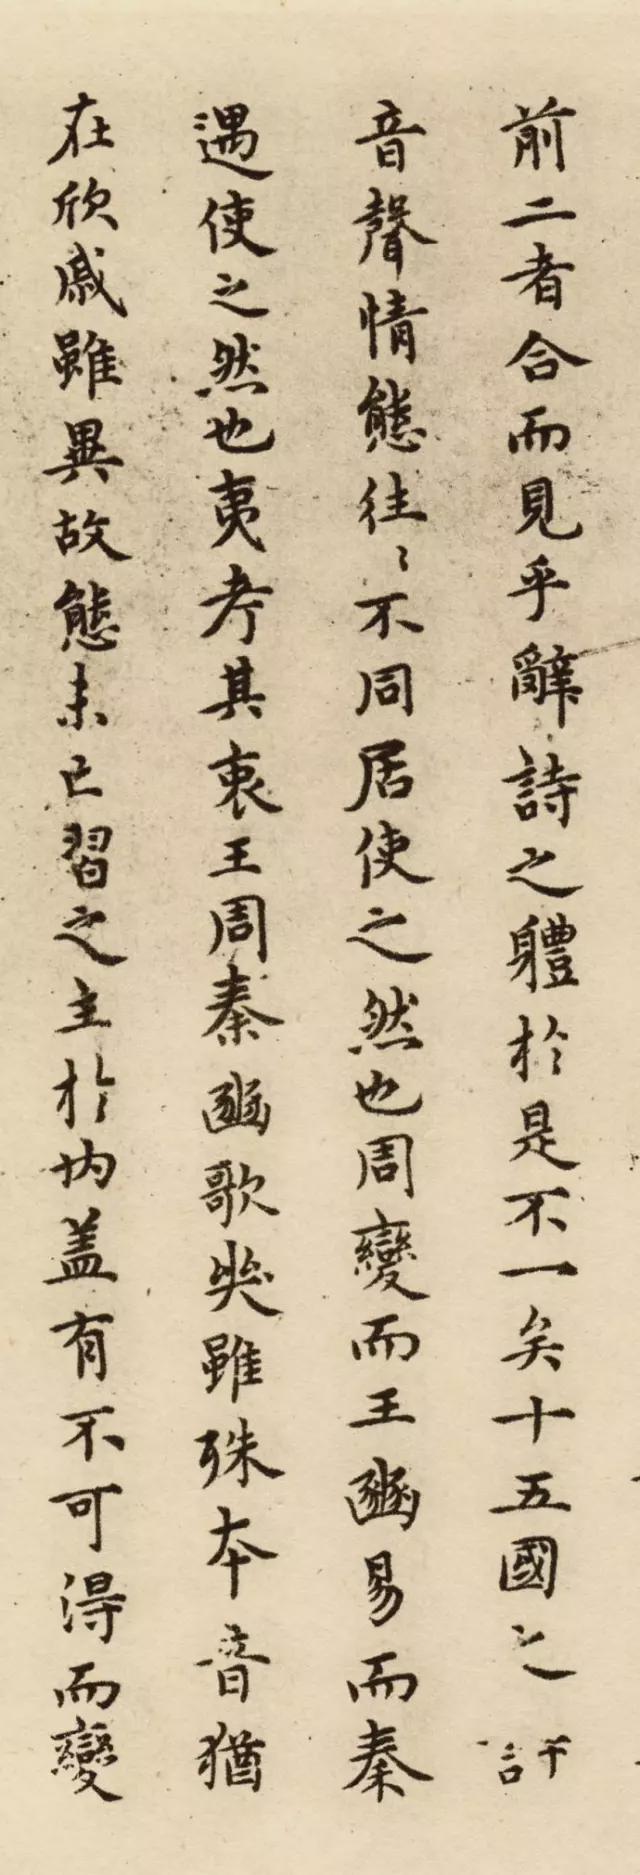 前二者合而見乎辭詩之軆於是不一矣十五國之評
音聲情態往〻不同居使之然也周變而王豳易而秦
遇使之然也夷考其衷王周秦豳歌哭雖殊本音猶
在欣戚雖異故態未已習之主於內蓋有不可得而變